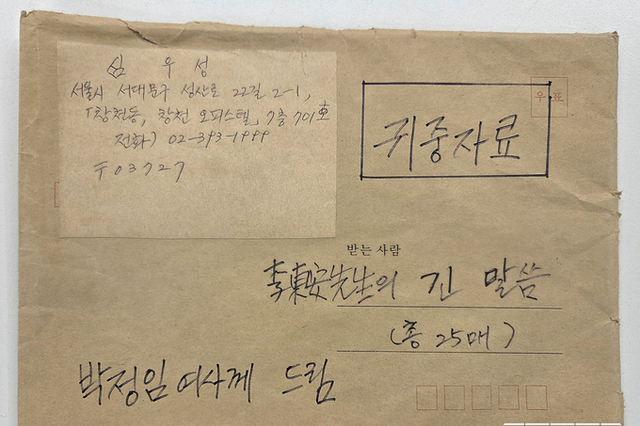 심 우 성
서울시 서대문구 성산로 22길 2-1,
(창천동, 창천 오피스텔, 7층 701호
전화) 02-393-1999
〒03727
우 표
귀중자료
받는 사람
李東安先生의 긴 말씀
(총 25매)
박정임 여사께 드림